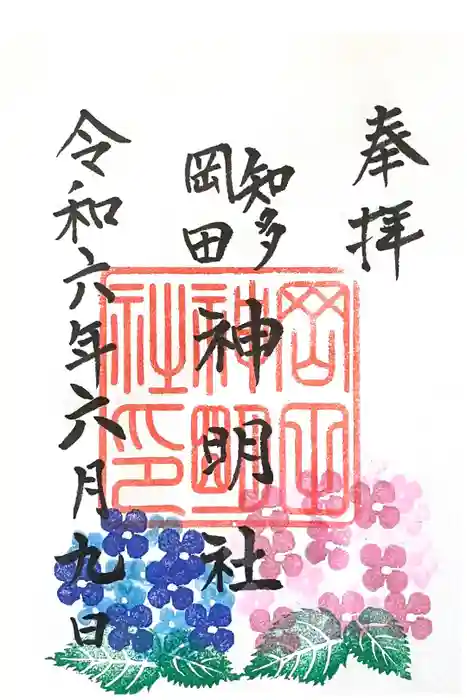 奉拝
知多
岡田
神明社
令和六年六月九日
岡田
神明
社印